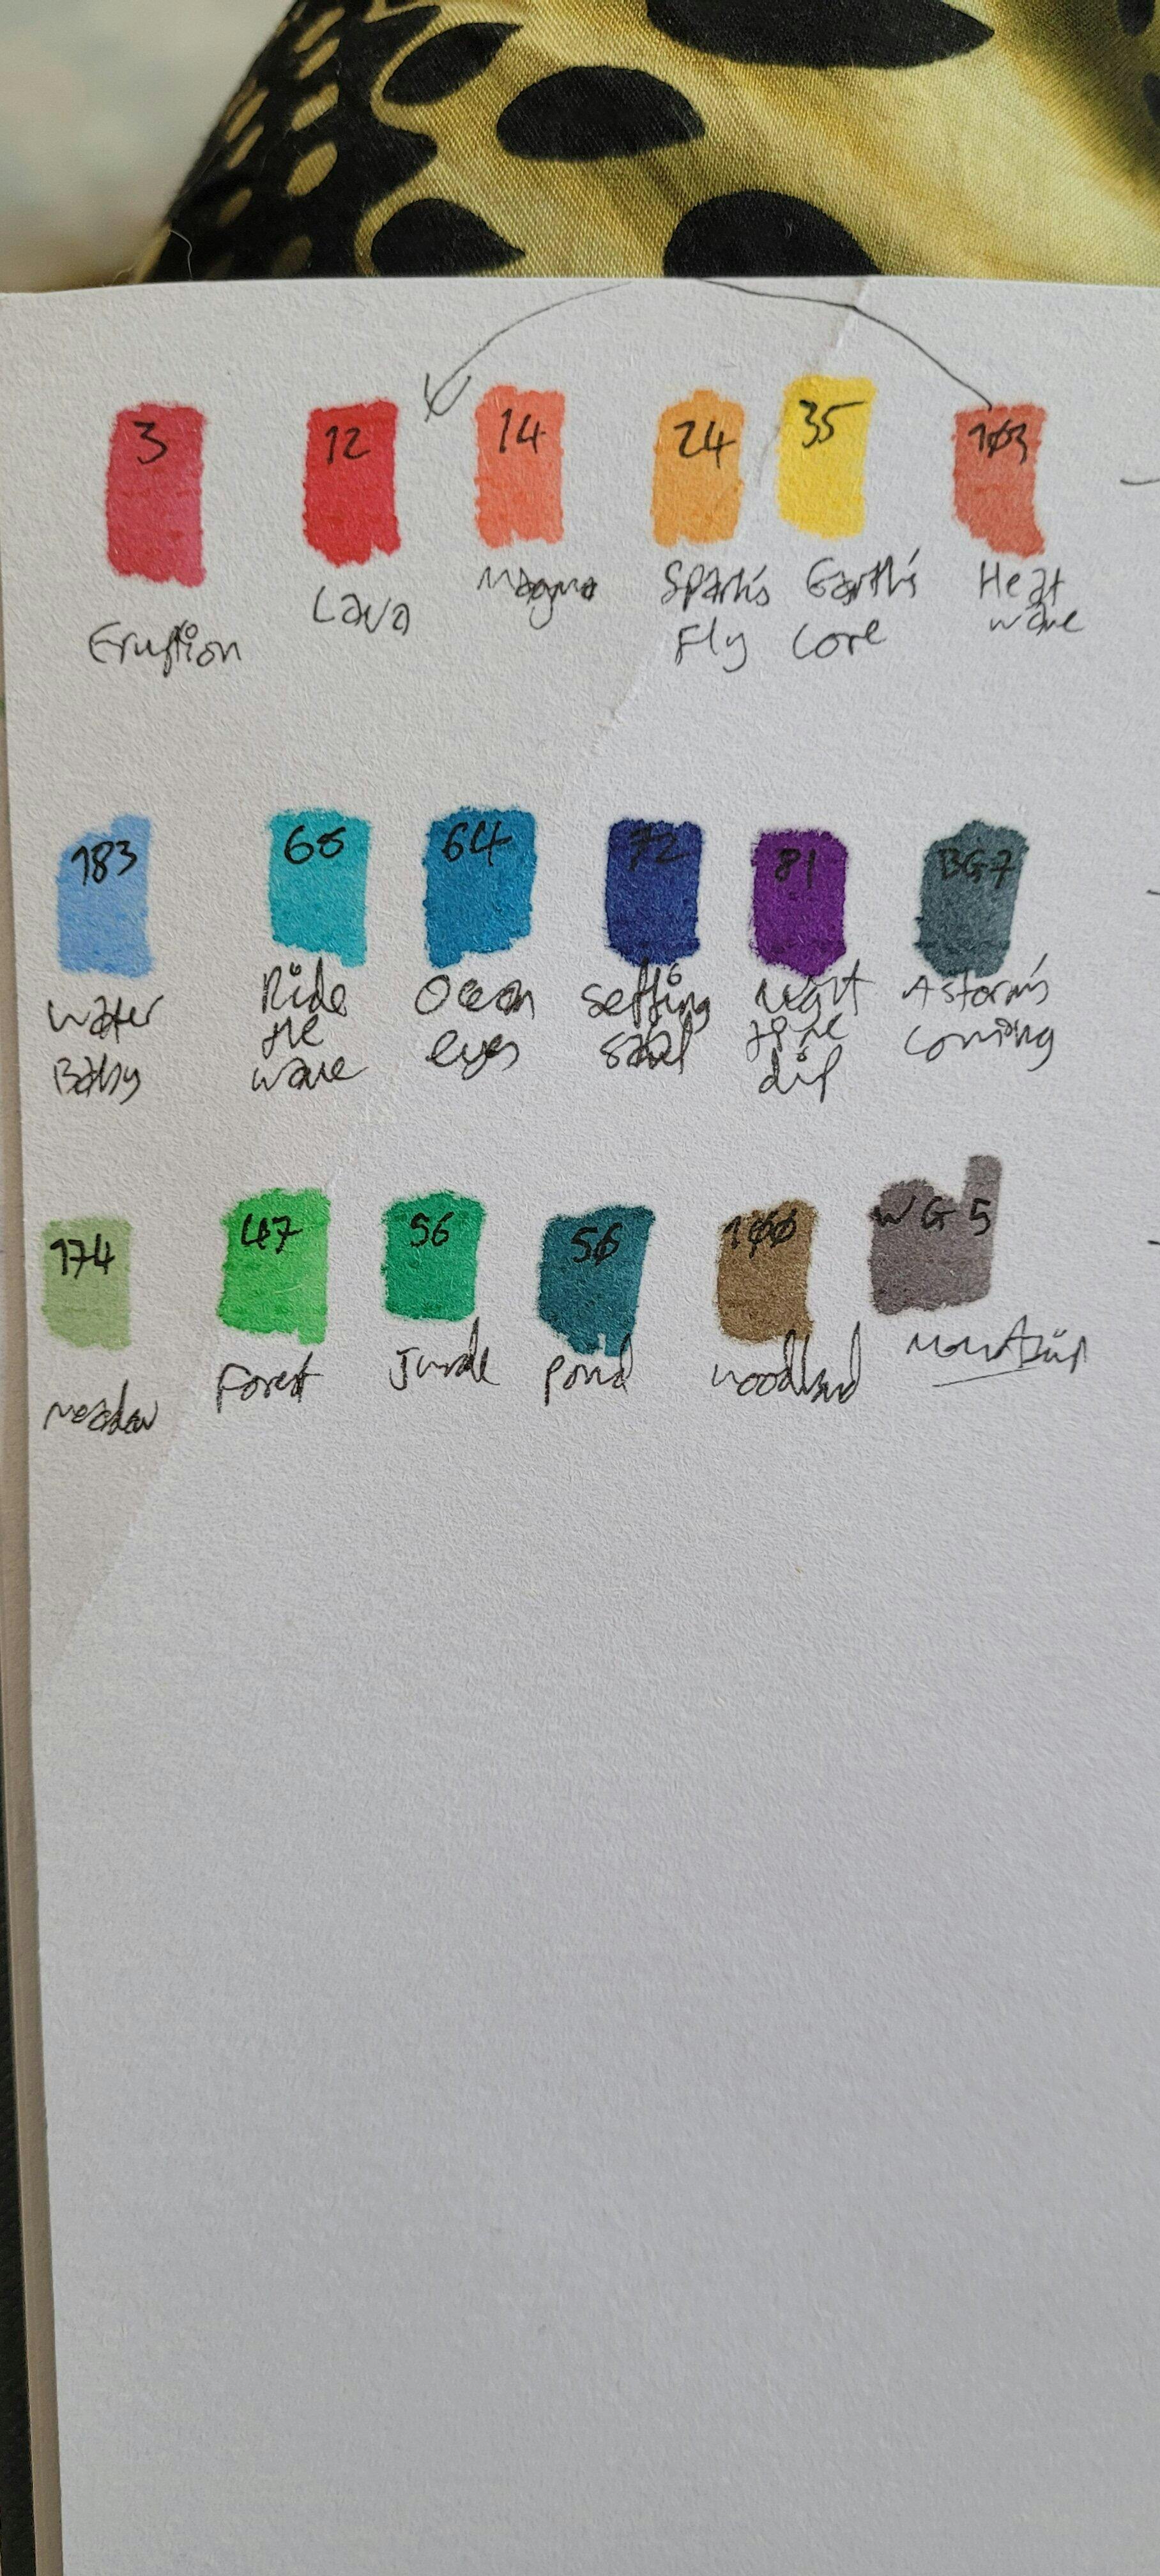 3 12 14 24 35 103
Eruption Lava Magma Spark's Earth's Heat
Fly Core wave
183 68 64 72 81 BG7
Water Ride Ocean Setting Night A storm's
Baby the eyes sail time coming
wave dip
174 47 56 50 100 WG5
Meadow Forest Jungle Pond Woodland Mountain